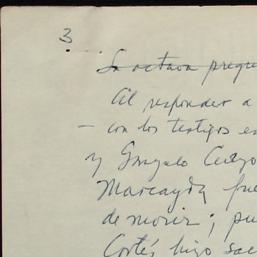 3
La octava pregu
Al responder a
– con los testigos es
y Gonzalo Cerezo
Marcayda fue
de morir; pu
Cortés hizo sac